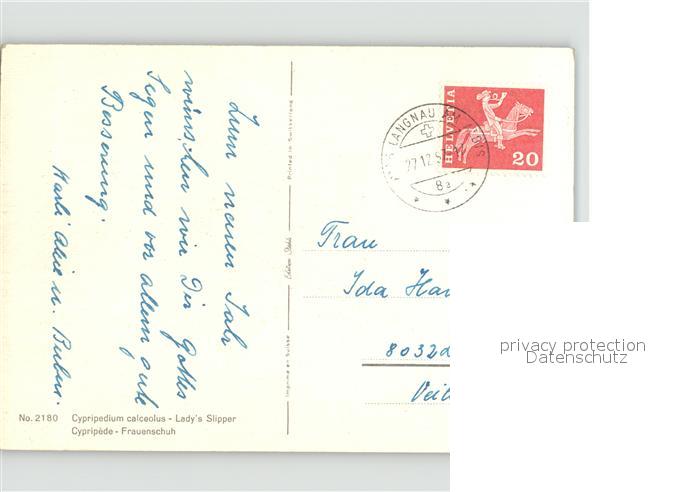 Zum neuen Jahr
wünschen wir Dir Gottes
Segen und vor allem gute
Besserung.
u. Buben.
No. 2180 Cypripedium calceolus - Lady's Slipper
Cypripède - Frauenschuh
Printed in Switzerland
Imprimé en Suisse
LANGNAU
27.12.
8a
HELVETIA
20
Frau
Ida Har
8032
privacy protection
Datenschutz